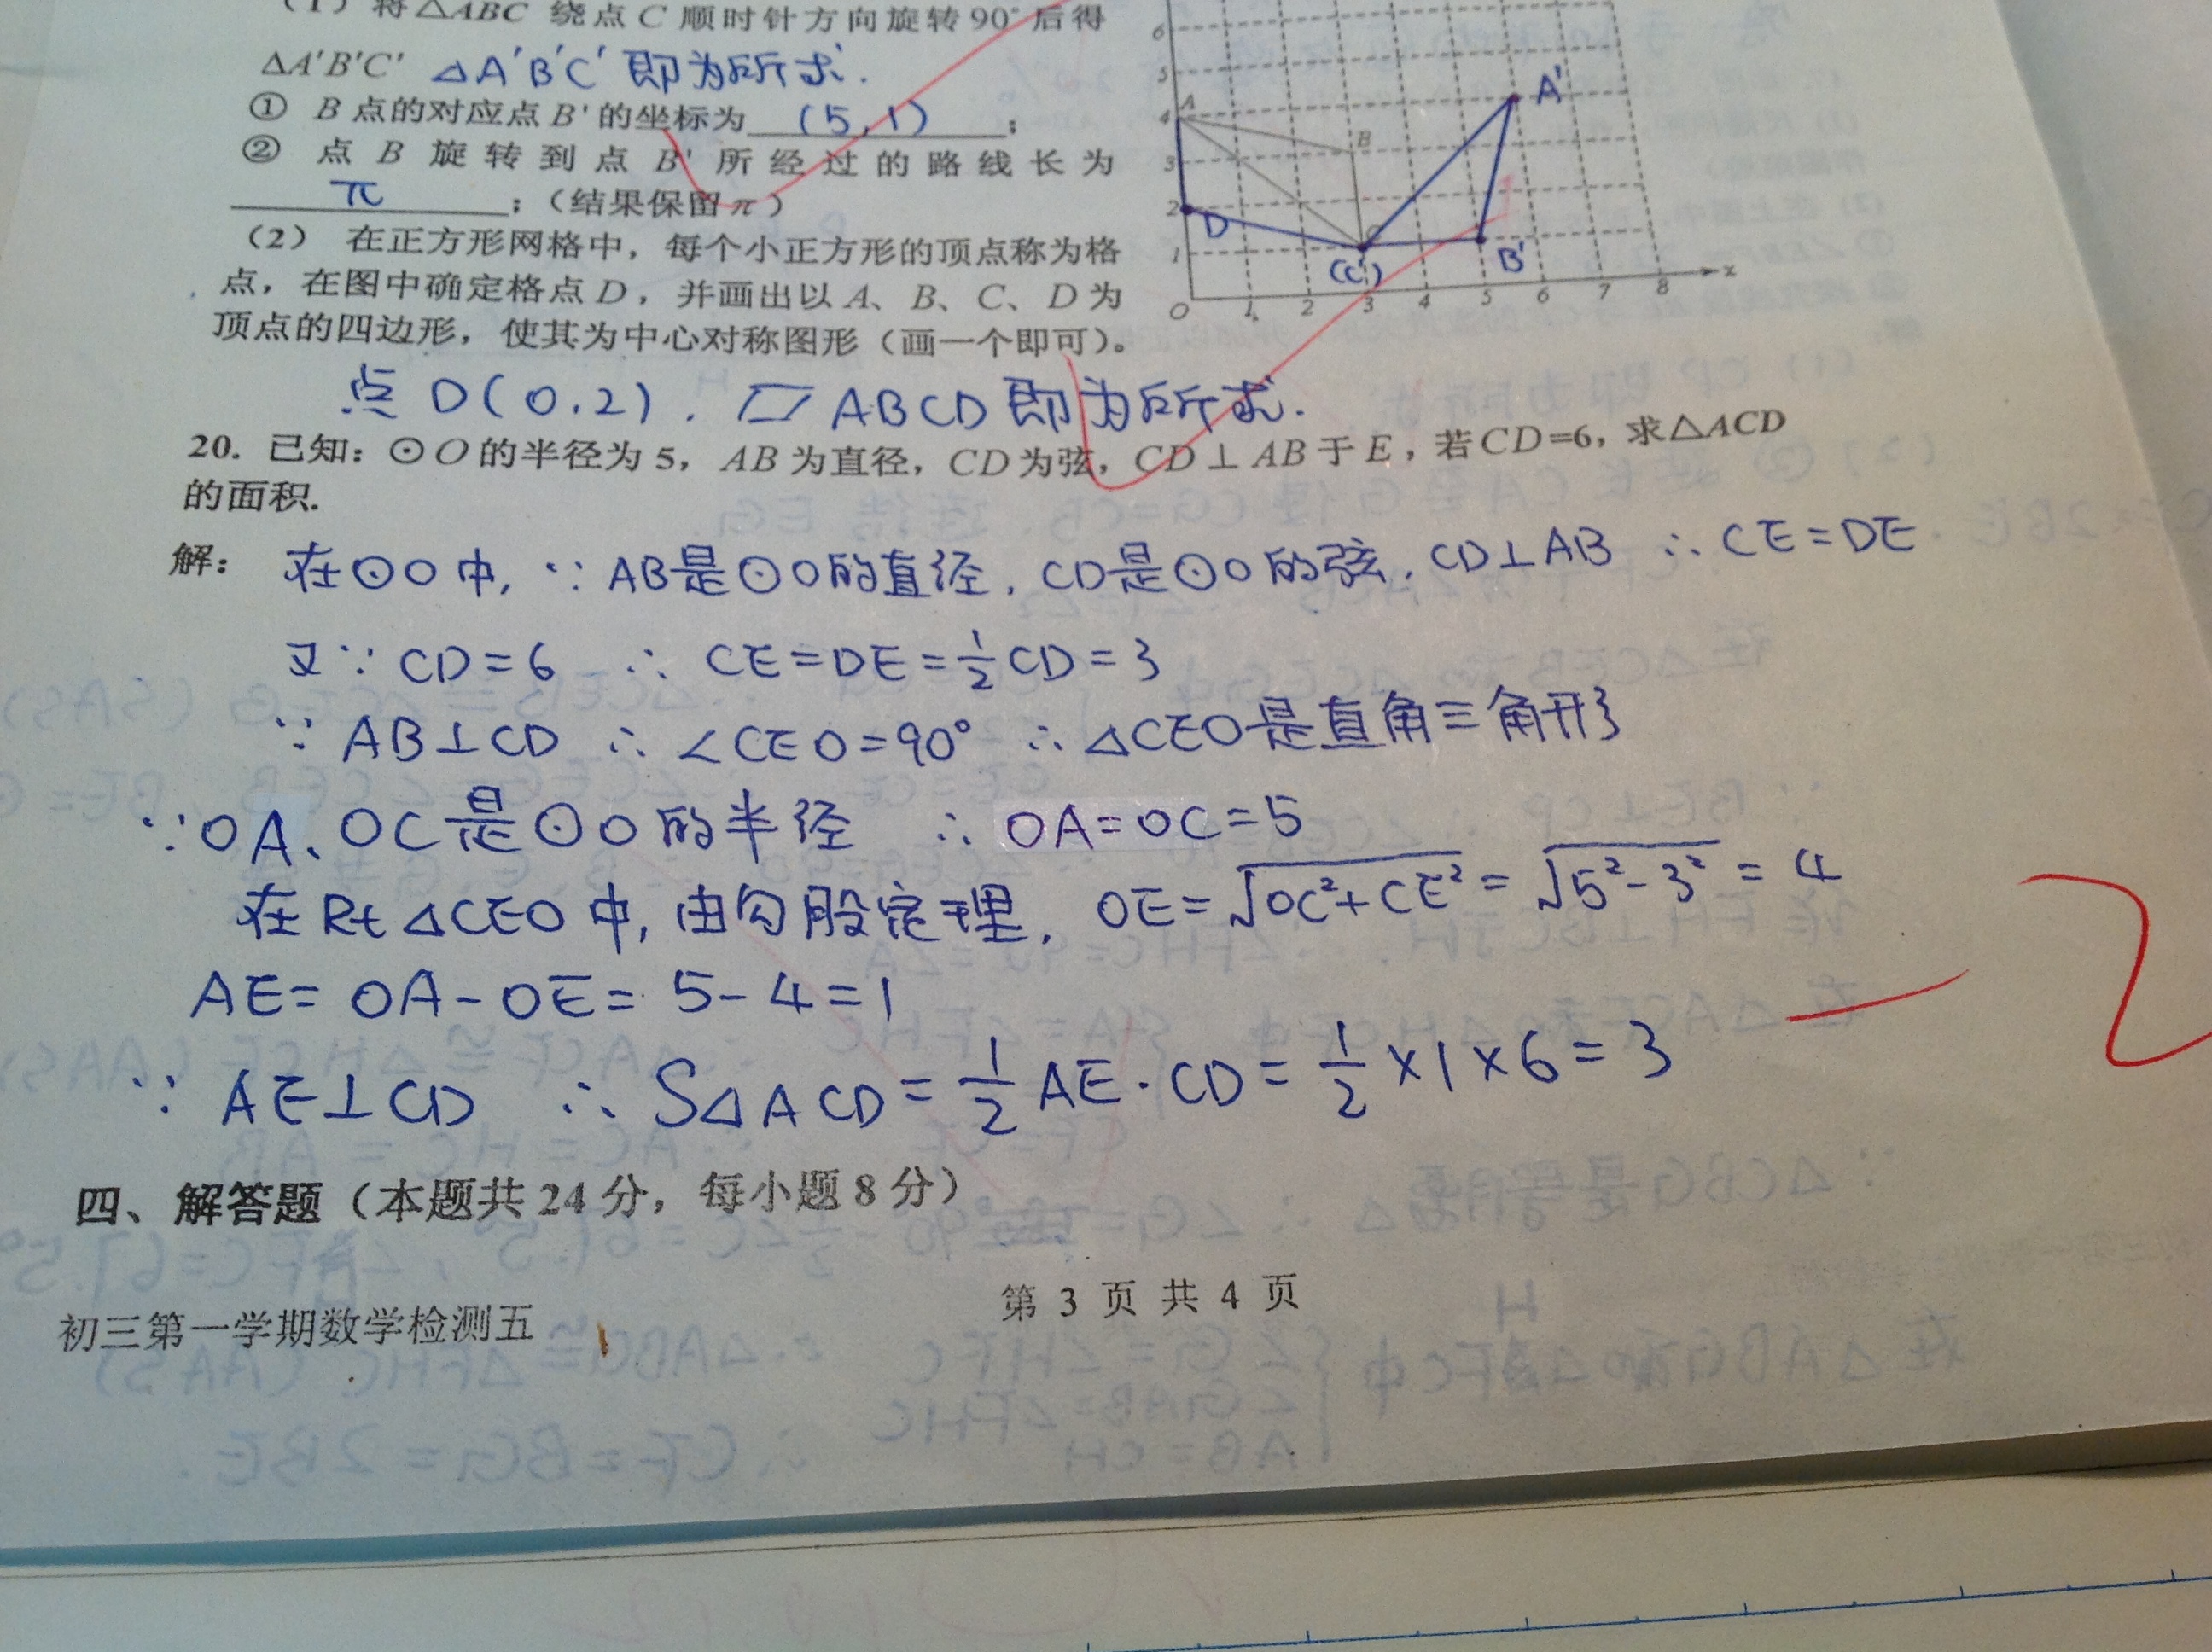 （1）将△ABC 绕点 C 顺时针方向旋转90°后得
△A'B'C' △A'B'C' 即为所求.
① B 点的对应点B'的坐标为 (5,1) ；
② 点 B 旋转到点 B' 所经过的路线长为
π ；（结果保留π）
（2） 在正方形网格中，每个小正方形的顶点称为格
点，在图中确定格点D，并画出以 A、B、C、D 为
顶点的四边形，使其为中心对称图形（画一个即可）。
点 D(0,2). ▱ ABCD 即为所求.
6
5
4 A
3 B
2 D
1 (C') B'
A'
O 1 2 3 4 5 6 7 8 x
20. 已知：⊙O的半径为5，AB为直径，CD为弦，CD⊥AB于E，若CD=6，求△ACD
的面积.
解： 在⊙O中, ∵ AB是⊙O的直径, CD是⊙O的弦, CD⊥AB ∴ CE=DE
又∵ CD=6 ∴ CE=DE=½CD=3
∵ AB⊥CD ∴ ∠CEO=90° ∴ △CEO是直角三角形
∵OA、OC是⊙O的半径 ∴ OA=OC=5
在Rt△CEO中, 由勾股定理, OE=√(OC²+CE²)=√(5²-3²)=4
AE=OA-OE=5-4=1
∵ AE⊥CD ∴ S△ACD=½AE·CD=½×1×6=3
2
四、解答题（本题共24分，每小题8分）
第 3 页 共 4 页
初三第一学期数学检测五